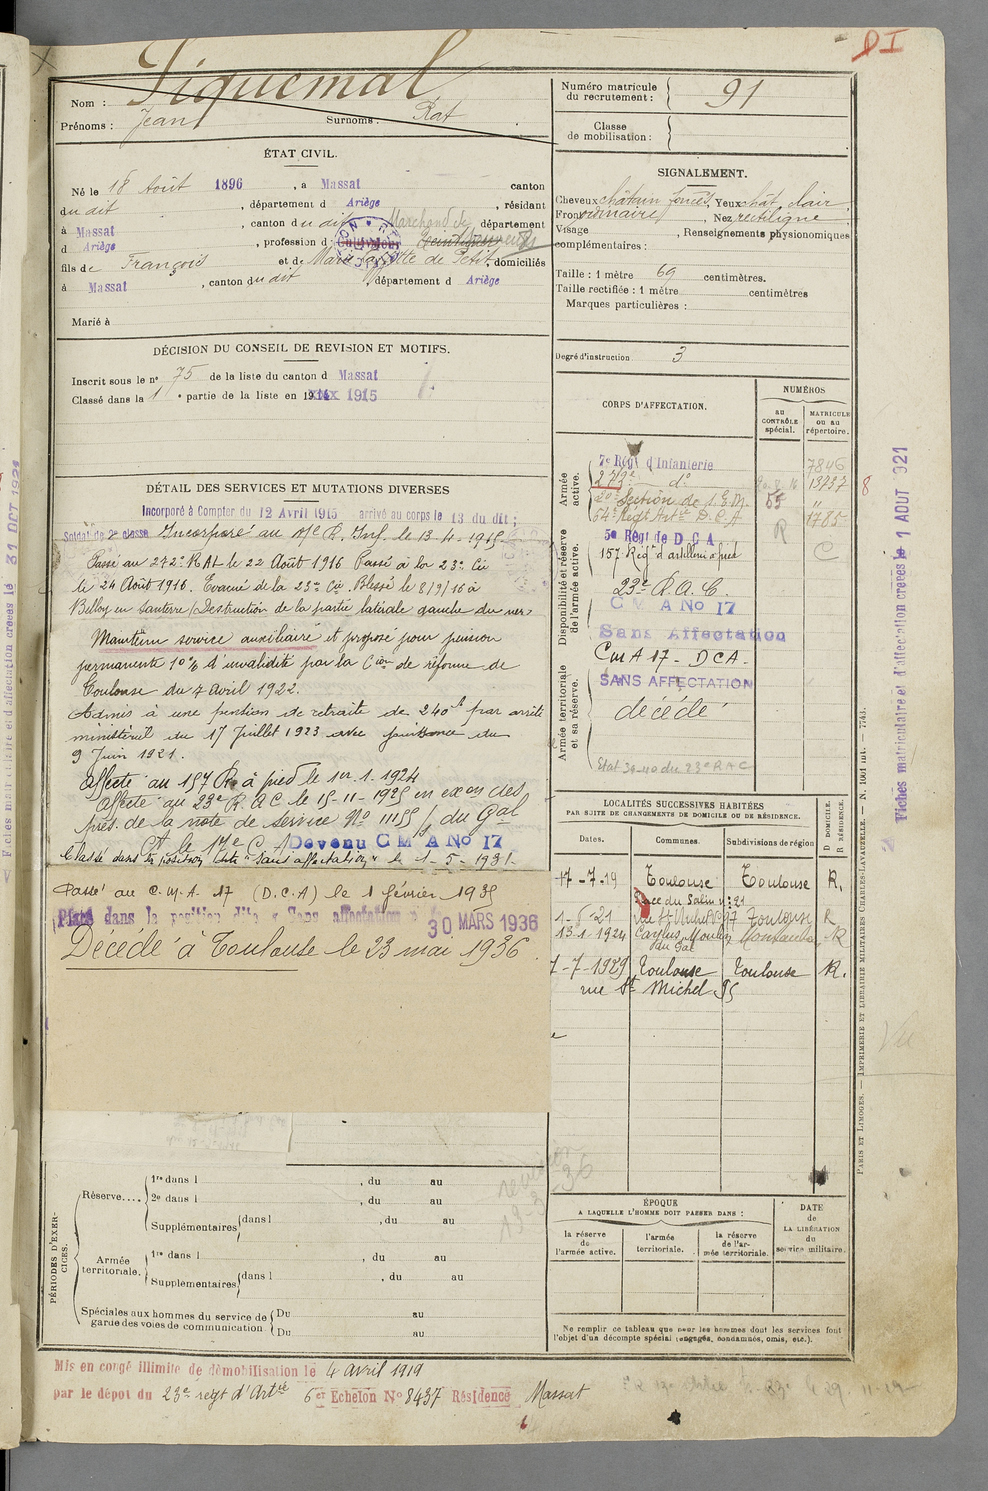 DI
Siquemal
Nom :
Prénoms : Jean Surnoms : Rat
Numéro matricule du recrutement : 91
Classe de mobilisation :
ÉTAT CIVIL.
Né le 18 Août 1896, a Massat canton
du dit, département d Ariège, résidant
à Massat, canton du dit département
d Ariège, profession d Cultivateur Marchand de
fils de François et de Marie de Petit, domiciliés
à Massat, canton du dit, département d Ariège
Marié à
SIGNALEMENT.
Cheveux châtain foncés, Yeux chât. clair,
Front ordinaire, Nez rectiligne
Visage , Renseignements physionomiques
complémentaires :
Taille : 1 mètre 69 centimètres.
Taille rectifiée : 1 mètre centimètres
Marques particulières :
Degré d'instruction 3
DÉCISION DU CONSEIL DE REVISION ET MOTIFS.
Inscrit sous le n° 75 de la liste du canton d Massat
Classé dans la 1 e partie de la liste en 1915
DÉTAIL DES SERVICES ET MUTATIONS DIVERSES
Incorporé à Compter du 12 Avril 1915 arrivé au corps le 13 du dit ;
Soldat de 2e classe Incorporé au 7e R. Inf. le 13-4-1915
Passé au 272e R.A.L le 22 Août 1916 Passé à la 23e Cie
le 24 Août 1916. Evacué de la 23e Cie Blessé le 8/9/16 à
Belloy en Santerre (Destruction de la partie latérale gauche du nez)
Maintenu service auxiliaire et proposé pour pension
permanente 10 % d'invalidité par la Cion de réforme de
Toulouse du 7 avril 1922.
Admis à une pension de retraite de 240f par arrêté
ministériel du 17 Juillet 1923 avec jouissance du
9 Juin 1921.
Affecté au 157 R. à pied le 1er. 1. 1924
Affecté au 23e R. A. C. le 15-11-1925 en exon des
pres. de la note de service No 11155 /3 du Gal
Ct le 17e C. A Devenu C M A No 17
Classé dans la position dite "Sans affectation" le 1-5-1931.
Passé au C.M.A. 17 (D.C.A) le 1 février 1935
Placé dans la position dite « Sans affectation » 30 MARS 1936
Décédé à Toulouse le 23 mai 1936.
CORPS D'AFFECTATION.
NUMÉROS
au CONTRÔLE spécial.
MATRICULE ou au répertoire.
Armée active.
7e Régt d'Infanterie 7846
272e do 13237
20e Section de S.E.M. 55
64e Régt Artie D.C.A 1785
Disponibilité et réserve de l'armée active.
5e Régt de D C A R
157 Régt d'artillerie à pied C
23e R.A.C.
C M A No 17
Sans Affectation
Armée territoriale et sa réserve.
CMA 17 - DCA -
SANS AFFECTATION
décédé
Etat 39-40 du 23e RAC
LOCALITÉS SUCCESSIVES HABITÉES
PAR SUITE DE CHANGEMENTS DE DOMICILE OU DE RÉSIDENCE.
Dates. Communes. Subdivisions de région D DOMICILE. R RÉSIDENCE.
17-7-19 Toulouse Toulouse R.
Place du Salin n° 21
1-6-21 97 Toulouse R
13-1 1924 Caylus Montauban R
7-7-1929 Toulouse Toulouse R.
rue St Michel 95
PÉRIODES D'EXERCICES.
Réserve.... 1re dans l , du au
2e dans l , du au
Supplémentaires dans l , du au
Armée territoriale. 1re dans l , du au
Supplémentaires dans l , du au
Spéciales aux hommes du service de garde des voies de communication Du au
Du au
ÉPOQUE
A LAQUELLE L'HOMME DOIT PASSER DANS :
la réserve de l'armée active.
l'armée territoriale.
la réserve de l'armée territoriale.
DATE de LA LIBÉRATION du service militaire.
Ne remplir ce tableau que pour les hommes dont les services font
l'objet d'un décompte spécial (engagés, condamnés, omis, etc.).
Mis en congé illimité de démobilisation le 4 avril 1919
par le dépot du 23e regt d'Artie 6er Echelon No 8437 Résidence Massat
PARIS ET LIMOGES. — IMPRIMERIE ET LIBRAIRIE MILITAIRES CHARLES-LAVAUZELLE.
Fiches matriculaire et d'affectation créées le 1 AOUT 1921
8
Vu
31 OCT